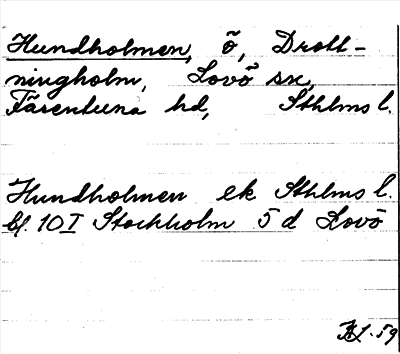 Hundholmen, ö, Drott-
ningholm, Lovö sn,
Färentuna hd, Sthlms l.
Hundholmen ek Sthlms l.
bl. 10 I Stockholm 5 d Lovö